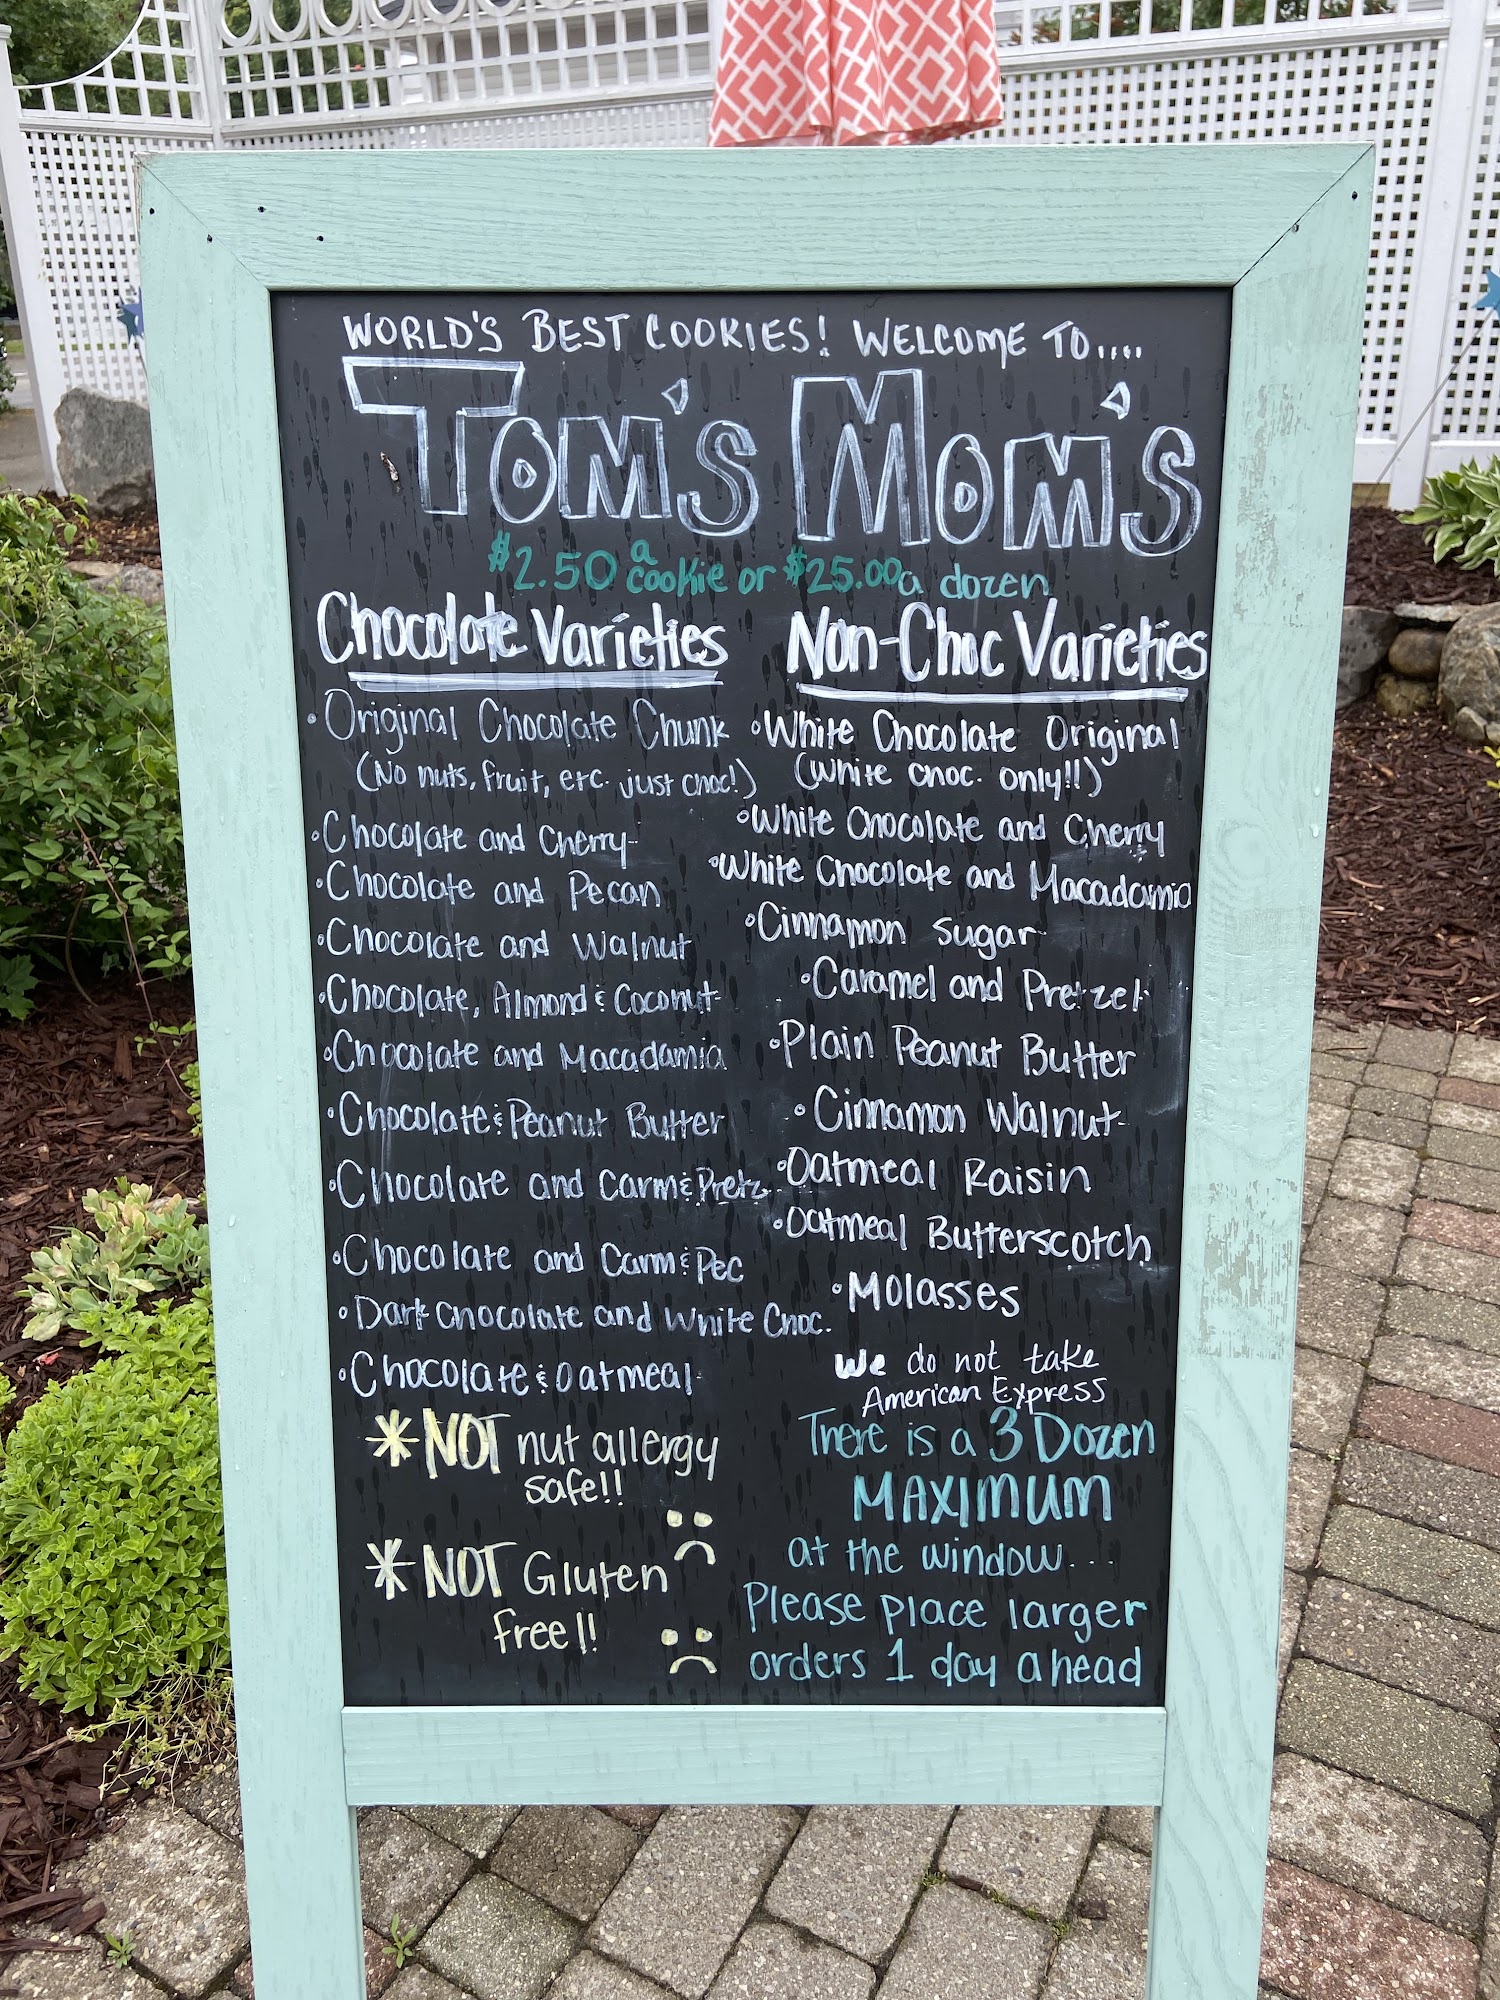 WORLD'S BEST COOKIES! WELCOME TO....
TOM'S MOM'S
$2.50 a cookie or $25.00 a dozen
Chocolate Varieties
• Original Chocolate Chunk
(No nuts, fruit, etc. just choc!)
• Chocolate and Cherry
• Chocolate and Pecan
• Chocolate and Walnut
• Chocolate, Almond & Coconut
• Chocolate and Macadamia
• Chocolate & Peanut Butter
• Chocolate and Carm & Pretz
• Chocolate and Carm & Pec
• Dark Chocolate and White Choc.
• Chocolate & Oatmeal
*NOT nut allergy
safe!!
*NOT Gluten
free!!
Non-Choc Varieties
• White Chocolate Original
(White choc. only!!)
• White Chocolate and Cherry
• White Chocolate and Macadamia
• Cinnamon Sugar
• Caramel and Pretzel
• Plain Peanut Butter
• Cinnamon Walnut
• Oatmeal Raisin
• Oatmeal Butterscotch
• Molasses
We do not take
American Express
There is a 3 Dozen
MAXIMUM
at the window...
Please place larger
orders 1 day ahead